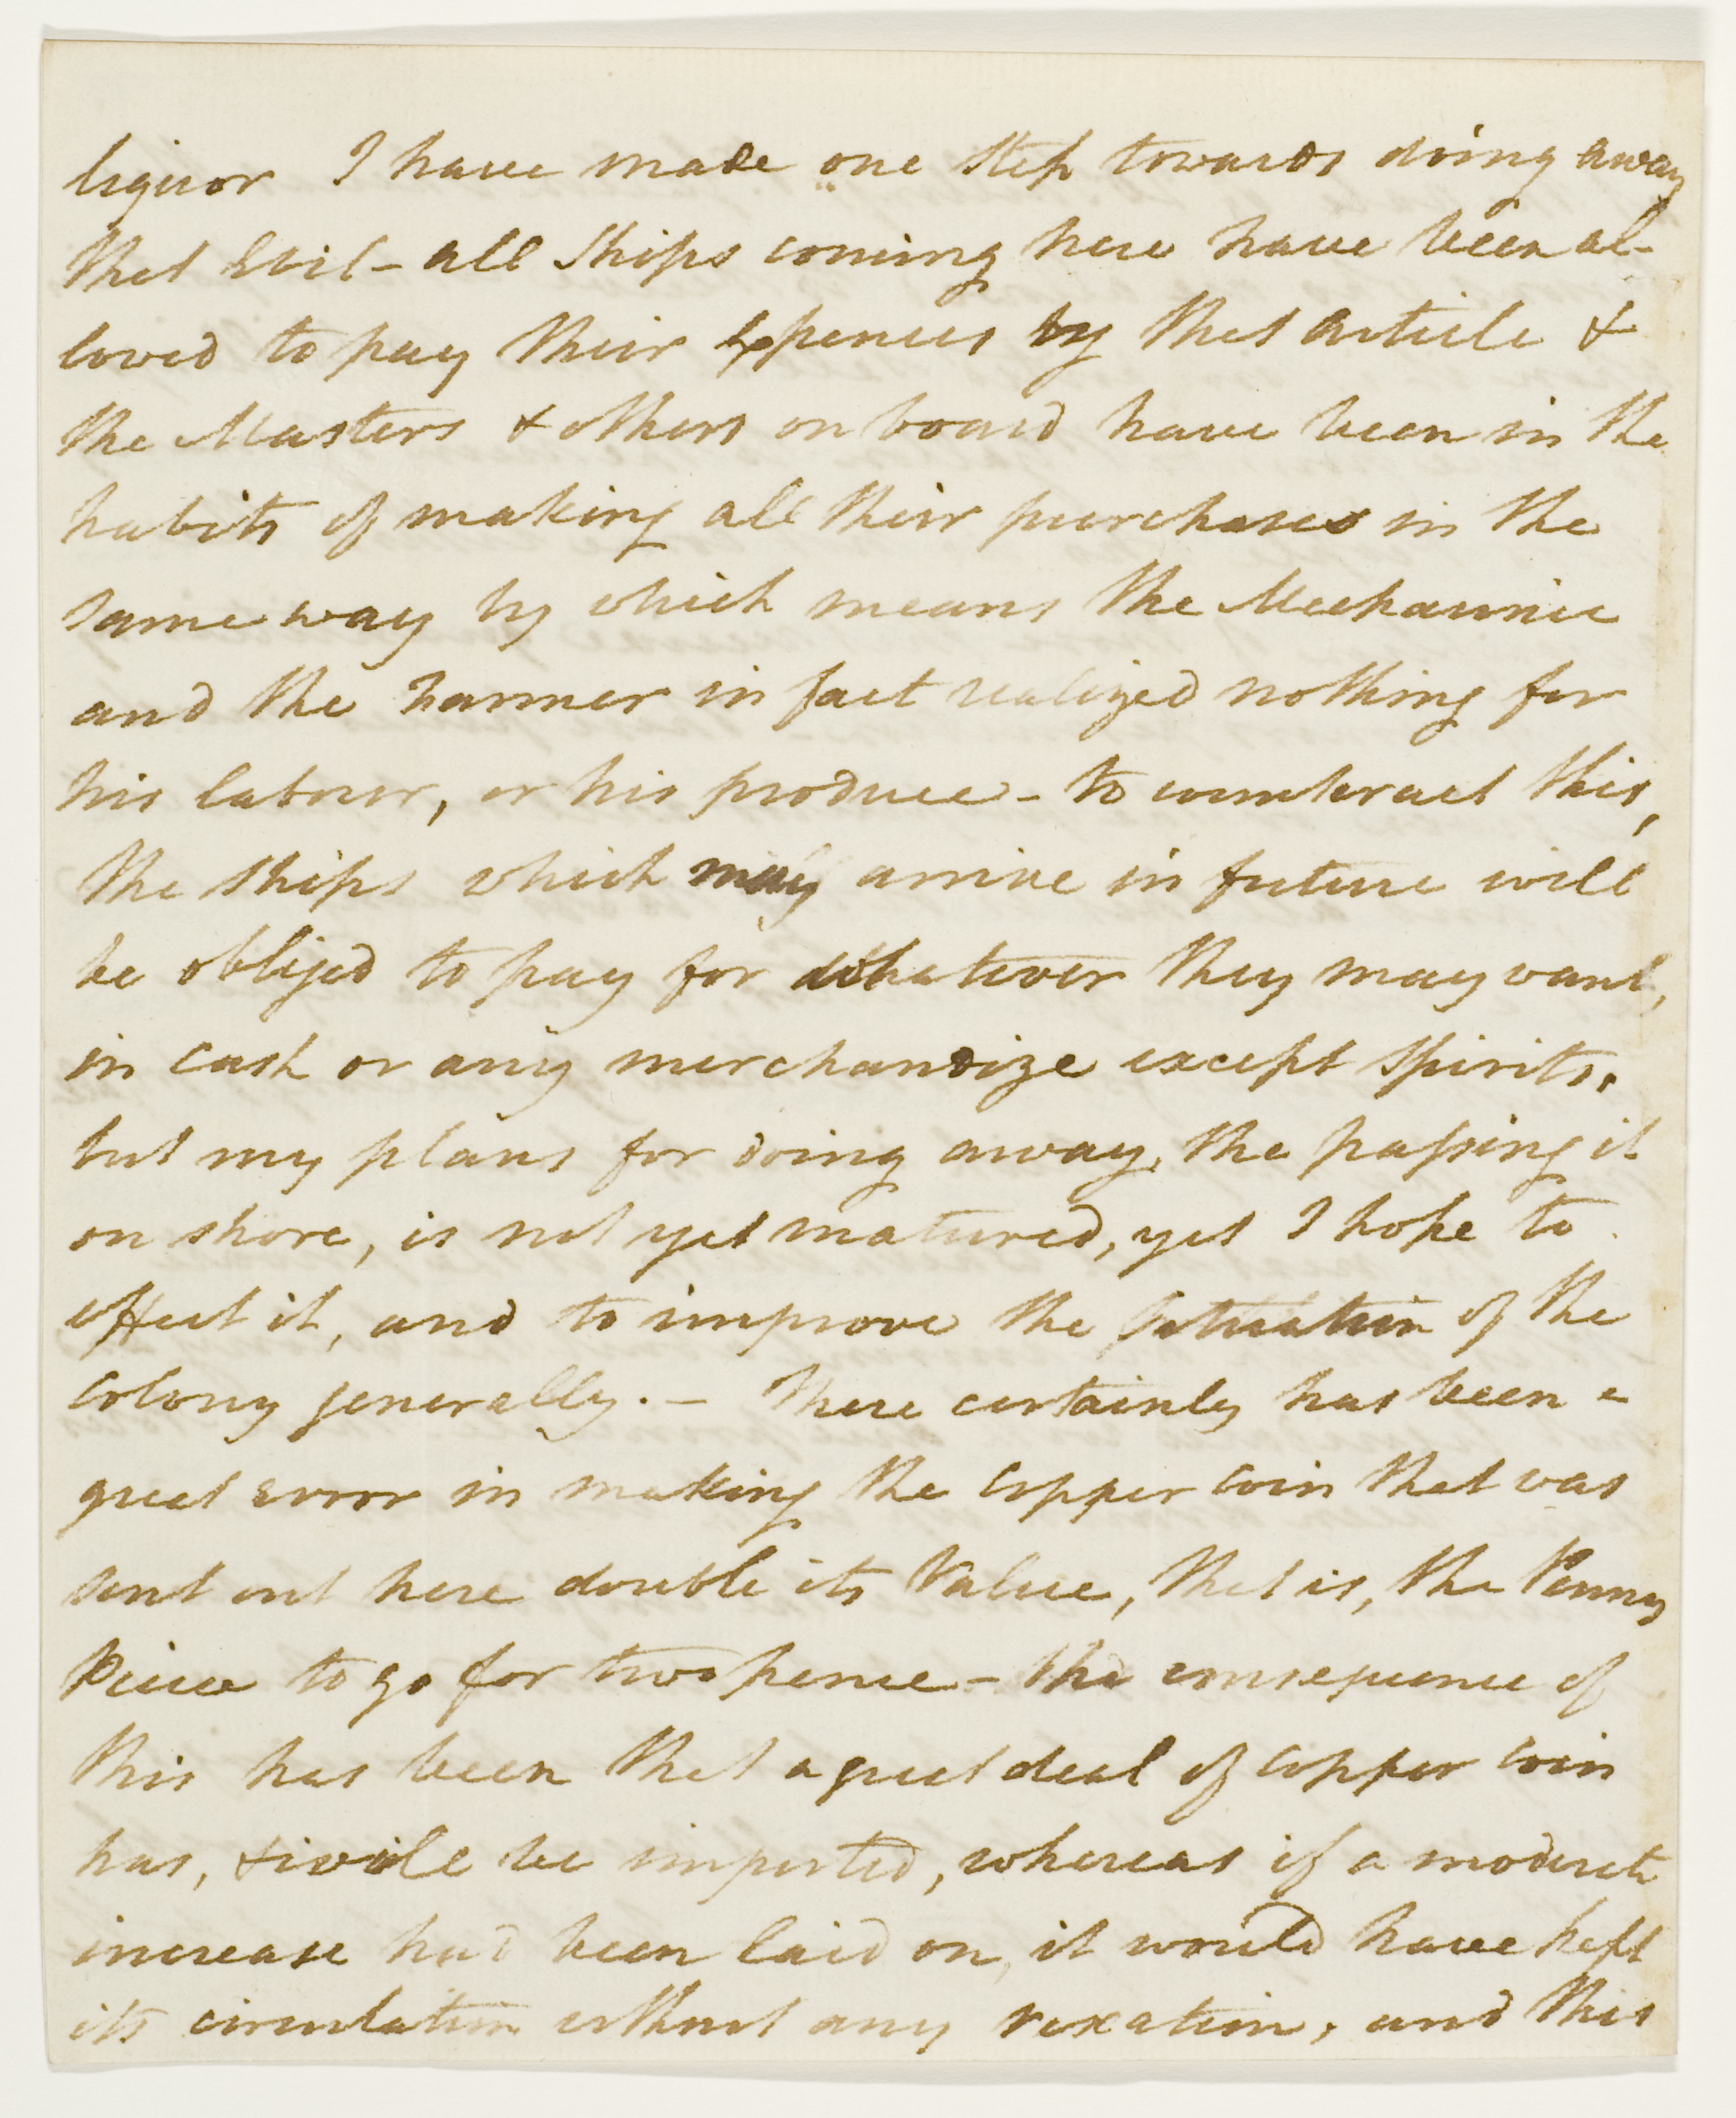 liquor I have made one Step towards doing away
that Evil - all Ships coming here have been al-
lowed to pay their Expences by that article &
the Masters & others on board have been in the
habits of making all their purchases in the
same way by which means the Mechannic
and the Farmer in fact realized nothing for
his labour, or his produce - to counteract this,
the Ships which may arrive in future will
be obliged to pay for whatever they may want,
in Cash or any merchandize except Spirits.
but my plans for doing away, the passing it
on shore, is not yet matured, yet I hope to
effect it, and to improve the Situation of the
Colony generally. - There certainly has been a
great error in making the Copper Coin that was
sent out here double its Value, that is, the Penny
Piece to go for two pence - the consequence of
this has been that a great deal of Copper Coin
has, & will be imported, whereas if a moderate
increase had been laid on, it would have kept
its circulation without any vexation, and this